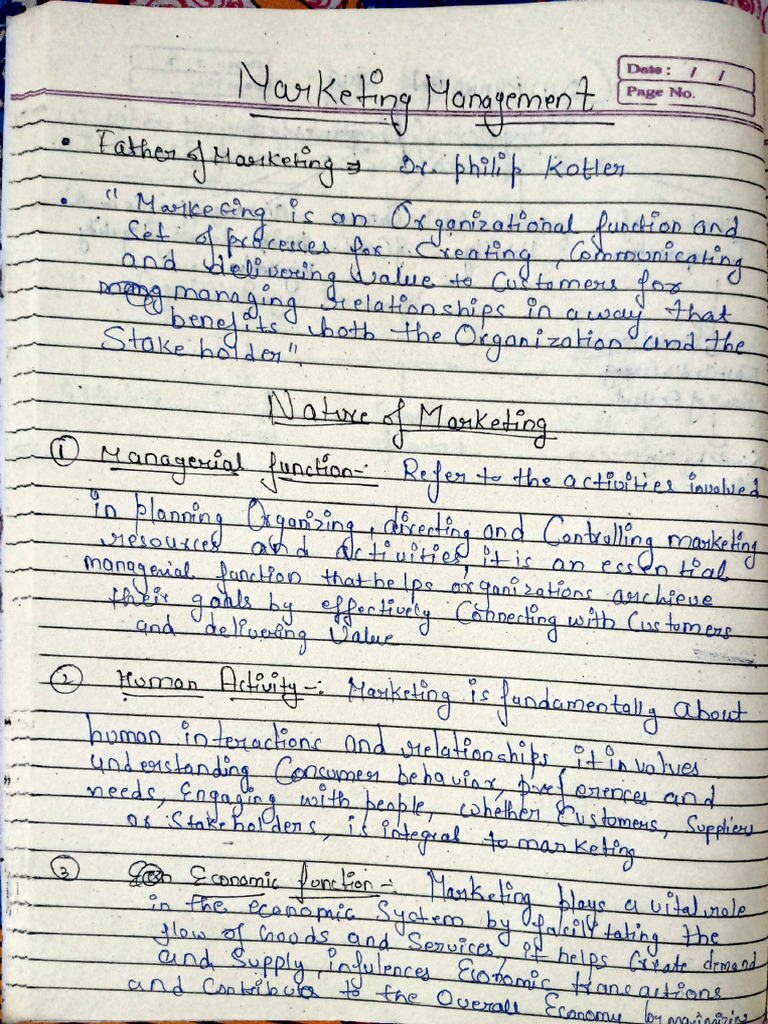 Marketing Management
Date: / /
Page No.
• Father of Marketing ⇒ Dr. Philip Kotler
• "Marketing is an Organizational function and
Set of processes for Creating, Communicating
and delivering value to Customers for
managing relationships in a way that
benefits both the Organization and the
Stake holder".
Nature of Marketing
① Managerial function-: Refer to the activities involved
in planning Organizing, directing and Controlling marketing
resources and activities, it is an essential
managerial function that helps organizations archieve
their goals by effectively Connecting with Customers
and delivering Value
② Human Activity-: Marketing is fundamentally about
human interactions and relationships, it involves
understanding Consumer behavior, preferences and
needs, Engaging with people, whether Customers, Suppliers
or Stakeholders, is integral to marketing
③ Economic function-: Marketing plays a vital role
in the economic System by facilitating the
flow of Goods and Services, it helps Create demand
and Supply, infulences Economic transactions
and Contribute to the Overall Economy by